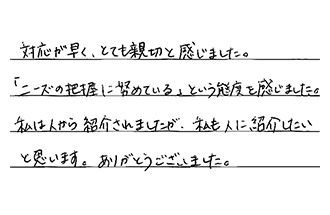 対応が早く、とても親切と感じました。
「ニーズの把握に努めている」という態度を感じました。
私は人から紹介されましたが、私も人に紹介したい
と思います。ありがとうございました。